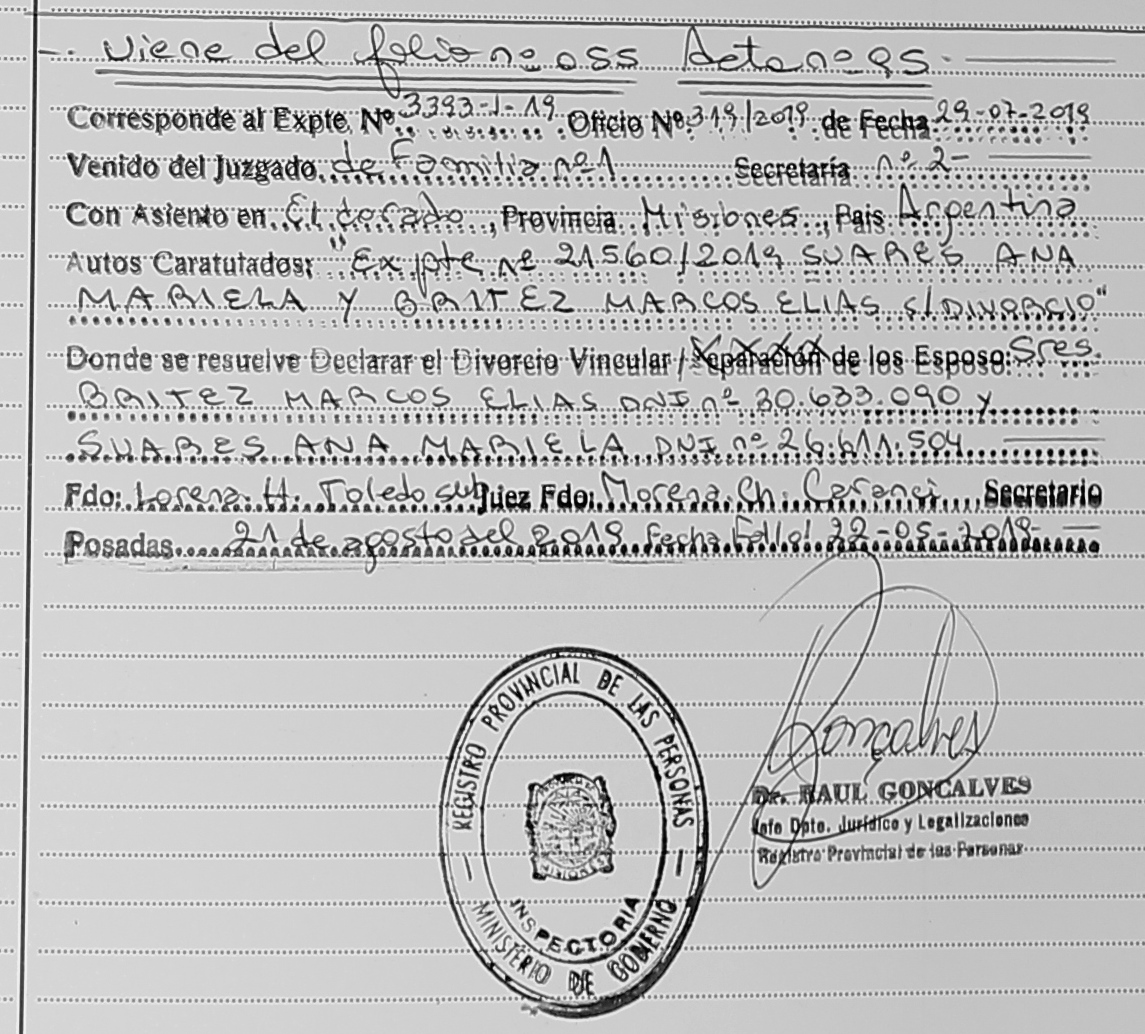 -. Viene del folio nº 055 Acta nº 95.-
Corresponde al Expte. Nº 3393-J-19. Oficio Nº 319/2019 de Fecha 29-07-2019
Venido del Juzgado de Familia nº 1 Secretaría nº 2-
Con Asiento en Eldorado, Provincia Misiones, País Argentina
Autos Caratutados: "Expte nº 21560/2019 SUARES ANA
MARIELA Y BRITEZ MARCOS ELIAS s/DIVORCIO"
Donde se resuelve Declarar el Divorcio Vincular / Separación de los Esposo: Sres.
BRITEZ MARCOS ELIAS DNI nº 30.633.090 y
SUARES ANA MARIELA DNI nº 26.611.504
Fdo: Lorena H. Toledo sub Juez Fdo: Morena Ch. Secretario
Posadas 21 de agosto del 2019 Fecha Fallo: 22-05-2019-
REGISTRO PROVINCIAL DE LAS PERSONAS
MISIONES
INSPECTORIA
MINISTERIO DE GOBIERNO
Goncalves
Dr. RAUL GONCALVES
Jefe Dpto. Jurídico y Legalizaciones
Registro Provincial de las Personas